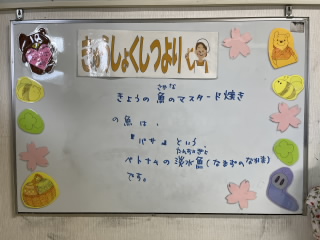 きゅうしょくしつより
さかな
きょうの 魚のマスタード焼き
の魚は、
『バサ』という、
たんすいぎょ
ベトナムの淡水魚(なまずのなかま)
です。